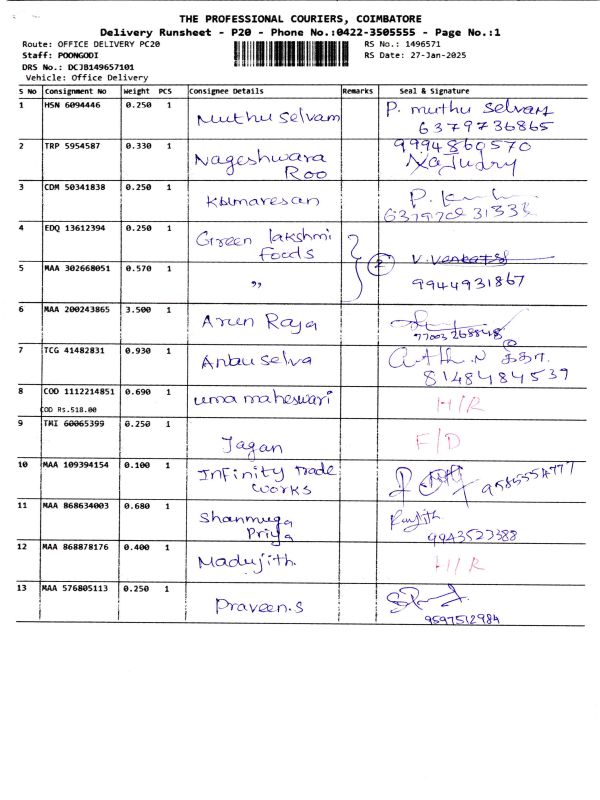 THE PROFESSIONAL COURIERS, COIMBATORE
Delivery Runsheet - P20 - Phone No.:0422-3505555 - Page No.:1
Route: OFFICE DELIVERY PC20
RS No.: 1496571
Staff: POONGODI
RS Date: 27-Jan-2025
DRS No.: DCJB149657101
Vehicle: Office Delivery
S No Consignment No Weight PCS Consignee Details Remarks Seal & Signature
1 HSN 6094446 0.250 1 Muthu Selvam P. muthu Selvam
6379736865
2 TRP 5954587 0.330 1 Nageshwara
Roo
9994860570
3 CDM 50341838 0.250 1 Kumaresan
4 EDQ 13612394 0.250 1 Green lakshmi
Foods
5 MAA 302668051 0.570 1 " 2
9944931867
6 MAA 200243865 3.500 1 Arun Raja
7 TCG 41482831 0.930 1 Anbu Selva
8148484539
8 COD 1112214851 0.690 1 uma maheswari H/R
COD Rs.518.00
9 TMI 60065399 0.250 1 Jagan F/D
10 MAA 109394154 0.100 1 Infinity Trade
Works
11 MAA 868634003 0.680 1 Shanmuga
Priya
Ranjith
9943523388
12 MAA 868878176 0.400 1 Madujith. H/R
13 MAA 576805113 0.250 1 Praveen.S
9597512984